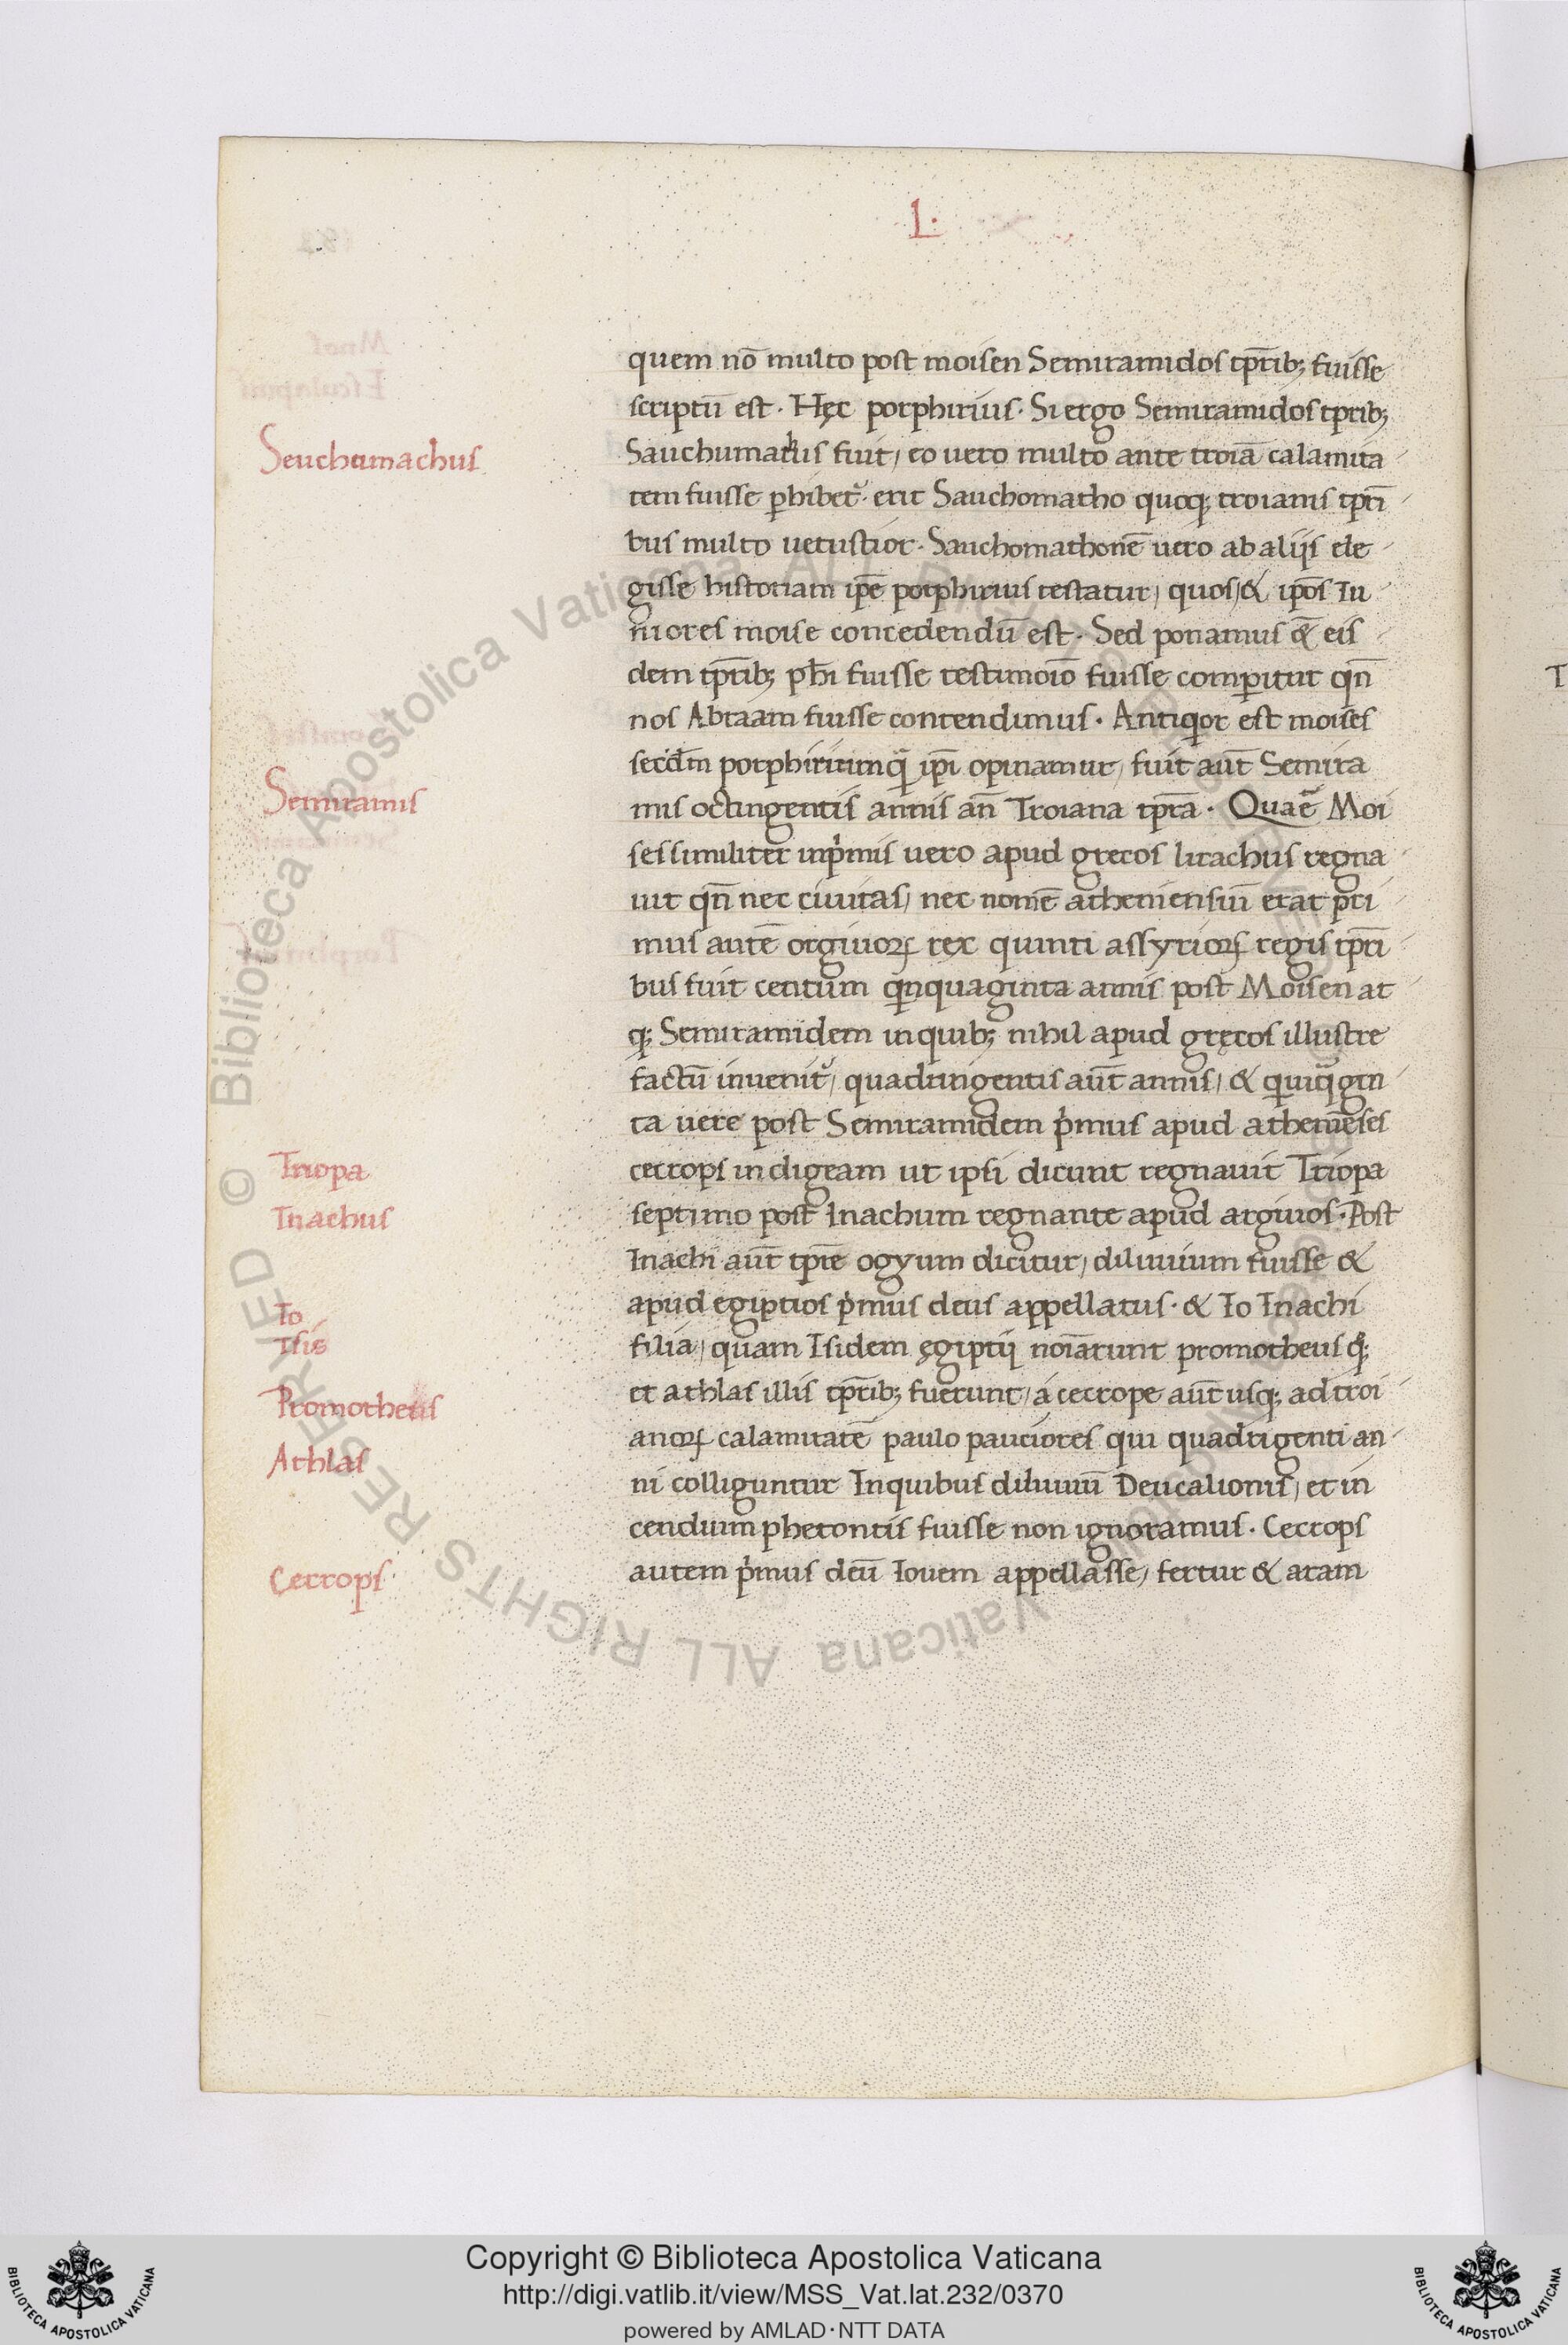 L·
quem nō multo post moisen Semiramidos tp̄rib; fuisse
scriptū est · Hęc porphirius · Si ergo Semiramidos tp̄rib;
Sauchumathus fuit, eo vero multo ante troiā calamita
tem fuisse perhibet᷑ · erit Sauchomatho quoq; troianis tp̄ri
bus multo uetustior · Sauchomathonē uero ab alijs ele
gisse historiam ip̄e porphirius testatur, quos, & ip̄os Iu
niores moise concedendū est · Sed ponamus & eis
dem tp̄rib; ph̄i fuisse testimoīo fuisse comperitur qn̄
nos Abraam fuisse contendimus · Antiquior est moises
secd̄m opinamur, fuit aūt Semira
mis octingentis annis an̄ Troiana tp̄ra · Quaē Moi
ses similiter inp̍mis uero apud grecos Iitachus regna
uit qn̄ nec ciuitas, nec nomē atheniensiū erat pri
mus autē orgiuoꝝ rex quinti assyrioꝝ regis tp̄ri
bus fuit centum quinquaginta annis post Moisen at
q; Semiramidem in quib; nihil apud gręcos illustre
factū inuenit᷑, quadringentis aūt annis, & quiquagin
ta uere post Semiramidem p̍mus apud atheniēses
cecrops indigeam ut ipsi dicunt regnauit Triopa
septimo post Inachum regnante apud argiuos · Post
Inachi aūt tp̄re ogyum dicitur, diluuium fuisse &
apud egiptios p̍mus deus appellatus · & Io Inachi
filia, quam Isidem ęgiptij noīarunt promotheus q;
et athlas illis tp̄rib; fuerunt, á cecrope aūt usq; ad troi
anoꝝ calamitatē paulo pauciores qui quadrigenti an
ni colliguntur In quibus diluuiū Deucalionis, et in
cendium phetontis fuisse non ignoramus · Cecrops
autem p̍mus deū Iouem appellasse, fertur & aram
Seuchumachus
Semiramis
Triopa
Inachus
Io
Isis
Promotheus
Athlas
Cecrops
© Biblioteca Apostolica Vaticana ALL RIGHTS RESERVED
Copyright © Biblioteca Apostolica Vaticana
http://digi.vatlib.it/view/MSS_Vat.lat.232/0370
powered by AMLAD·NTT DATA
BIBLIOTECA APOSTOLICA VATICANA
BIBLIOTECA APOSTOLICA VATICANA